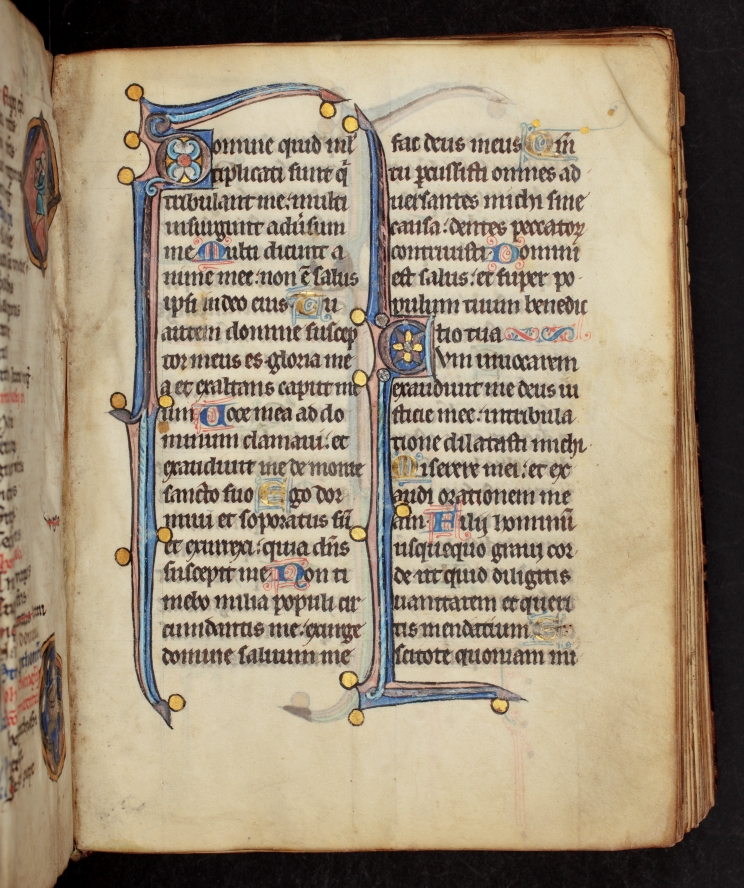 Domine quid ml̅
tiplicati sunt q̅
tribulant me. multi
insurgunt aduersum
me Multi dicunt a
nime mee: non ē salus
ipsi in deo eius Tu
autem domine suscep
tor meus es. gloria me
a et exaltans caput me
um Uoce mea ad do
minum clamaui: et
exaudiuit me de monte
sancto suo Ego dor
miui et soporatus su̅
et exurrexi: quia dn̅s
suscepit me Non ti
mebo milia populi cir
cumdantis me. exurge
domine saluum me
fac deus meus Qm̅
tu ꝑcussisti omnes ad
uersantes michi sine
causa: dentes peccatoꝝ
contriuisti Domini
est salus: et super po
pulum tuum benedic
tio tua
Cum inuocarem
exaudiuit me deus iu
sticie mee: in tribula
tione dilatasti michi
Miserere mei: et ex
audi orationem me
am Filij hominu̅
usquequo graui cor
de ut quid diligitis
uanitatem et queri
tis mendatium Et
scitote quoniam mi